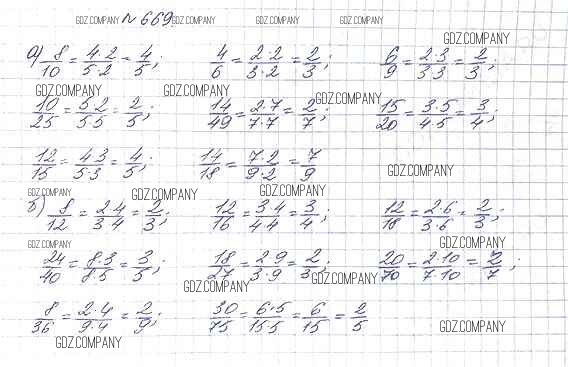 GDZ.COMPANY №669. GDZ.COMPANY GDZ.COMPANY GDZ.COMPANY
GDZ.COMPANY
а) 8/10 = 4·2/5·2 = 4/5; 4/6 = 2·2/3·2 = 2/3; 6/9 = 2·3/3·3 = 2/3;
GDZ.COMPANY GDZ.COMPANY GDZ.COMPANY
10/25 = 5·2/5·5 = 2/5; 14/49 = 2·7/7·7 = 2/7; 15/20 = 3·5/4·5 = 3/4;
12/15 = 4·3/5·3 = 4/5; 14/18 = 7·2/9·2 = 7/9
GDZ.COMPANY
GDZ.COMPANY GDZ.COMPANY GDZ.COMPANY
б) 8/12 = 2·4/3·4 = 2/3; 12/16 = 3·4/4·4 = 3/4; 12/18 = 2·6/3·6 = 2/3;
GDZ.COMPANY GDZ.COMPANY
24/40 = 8·3/8·5 = 3/5; 18/27 = 2·9/3·9 = 2/3; 20/70 = 2·10/7·10 = 2/7;
GDZ.COMPANY GDZ.COMPANY
8/36 = 2·4/9·4 = 2/9; 30/75 = 6·5/15·5 = 6/15 = 2/5
GDZ.COMPANY GDZ.COMPANY